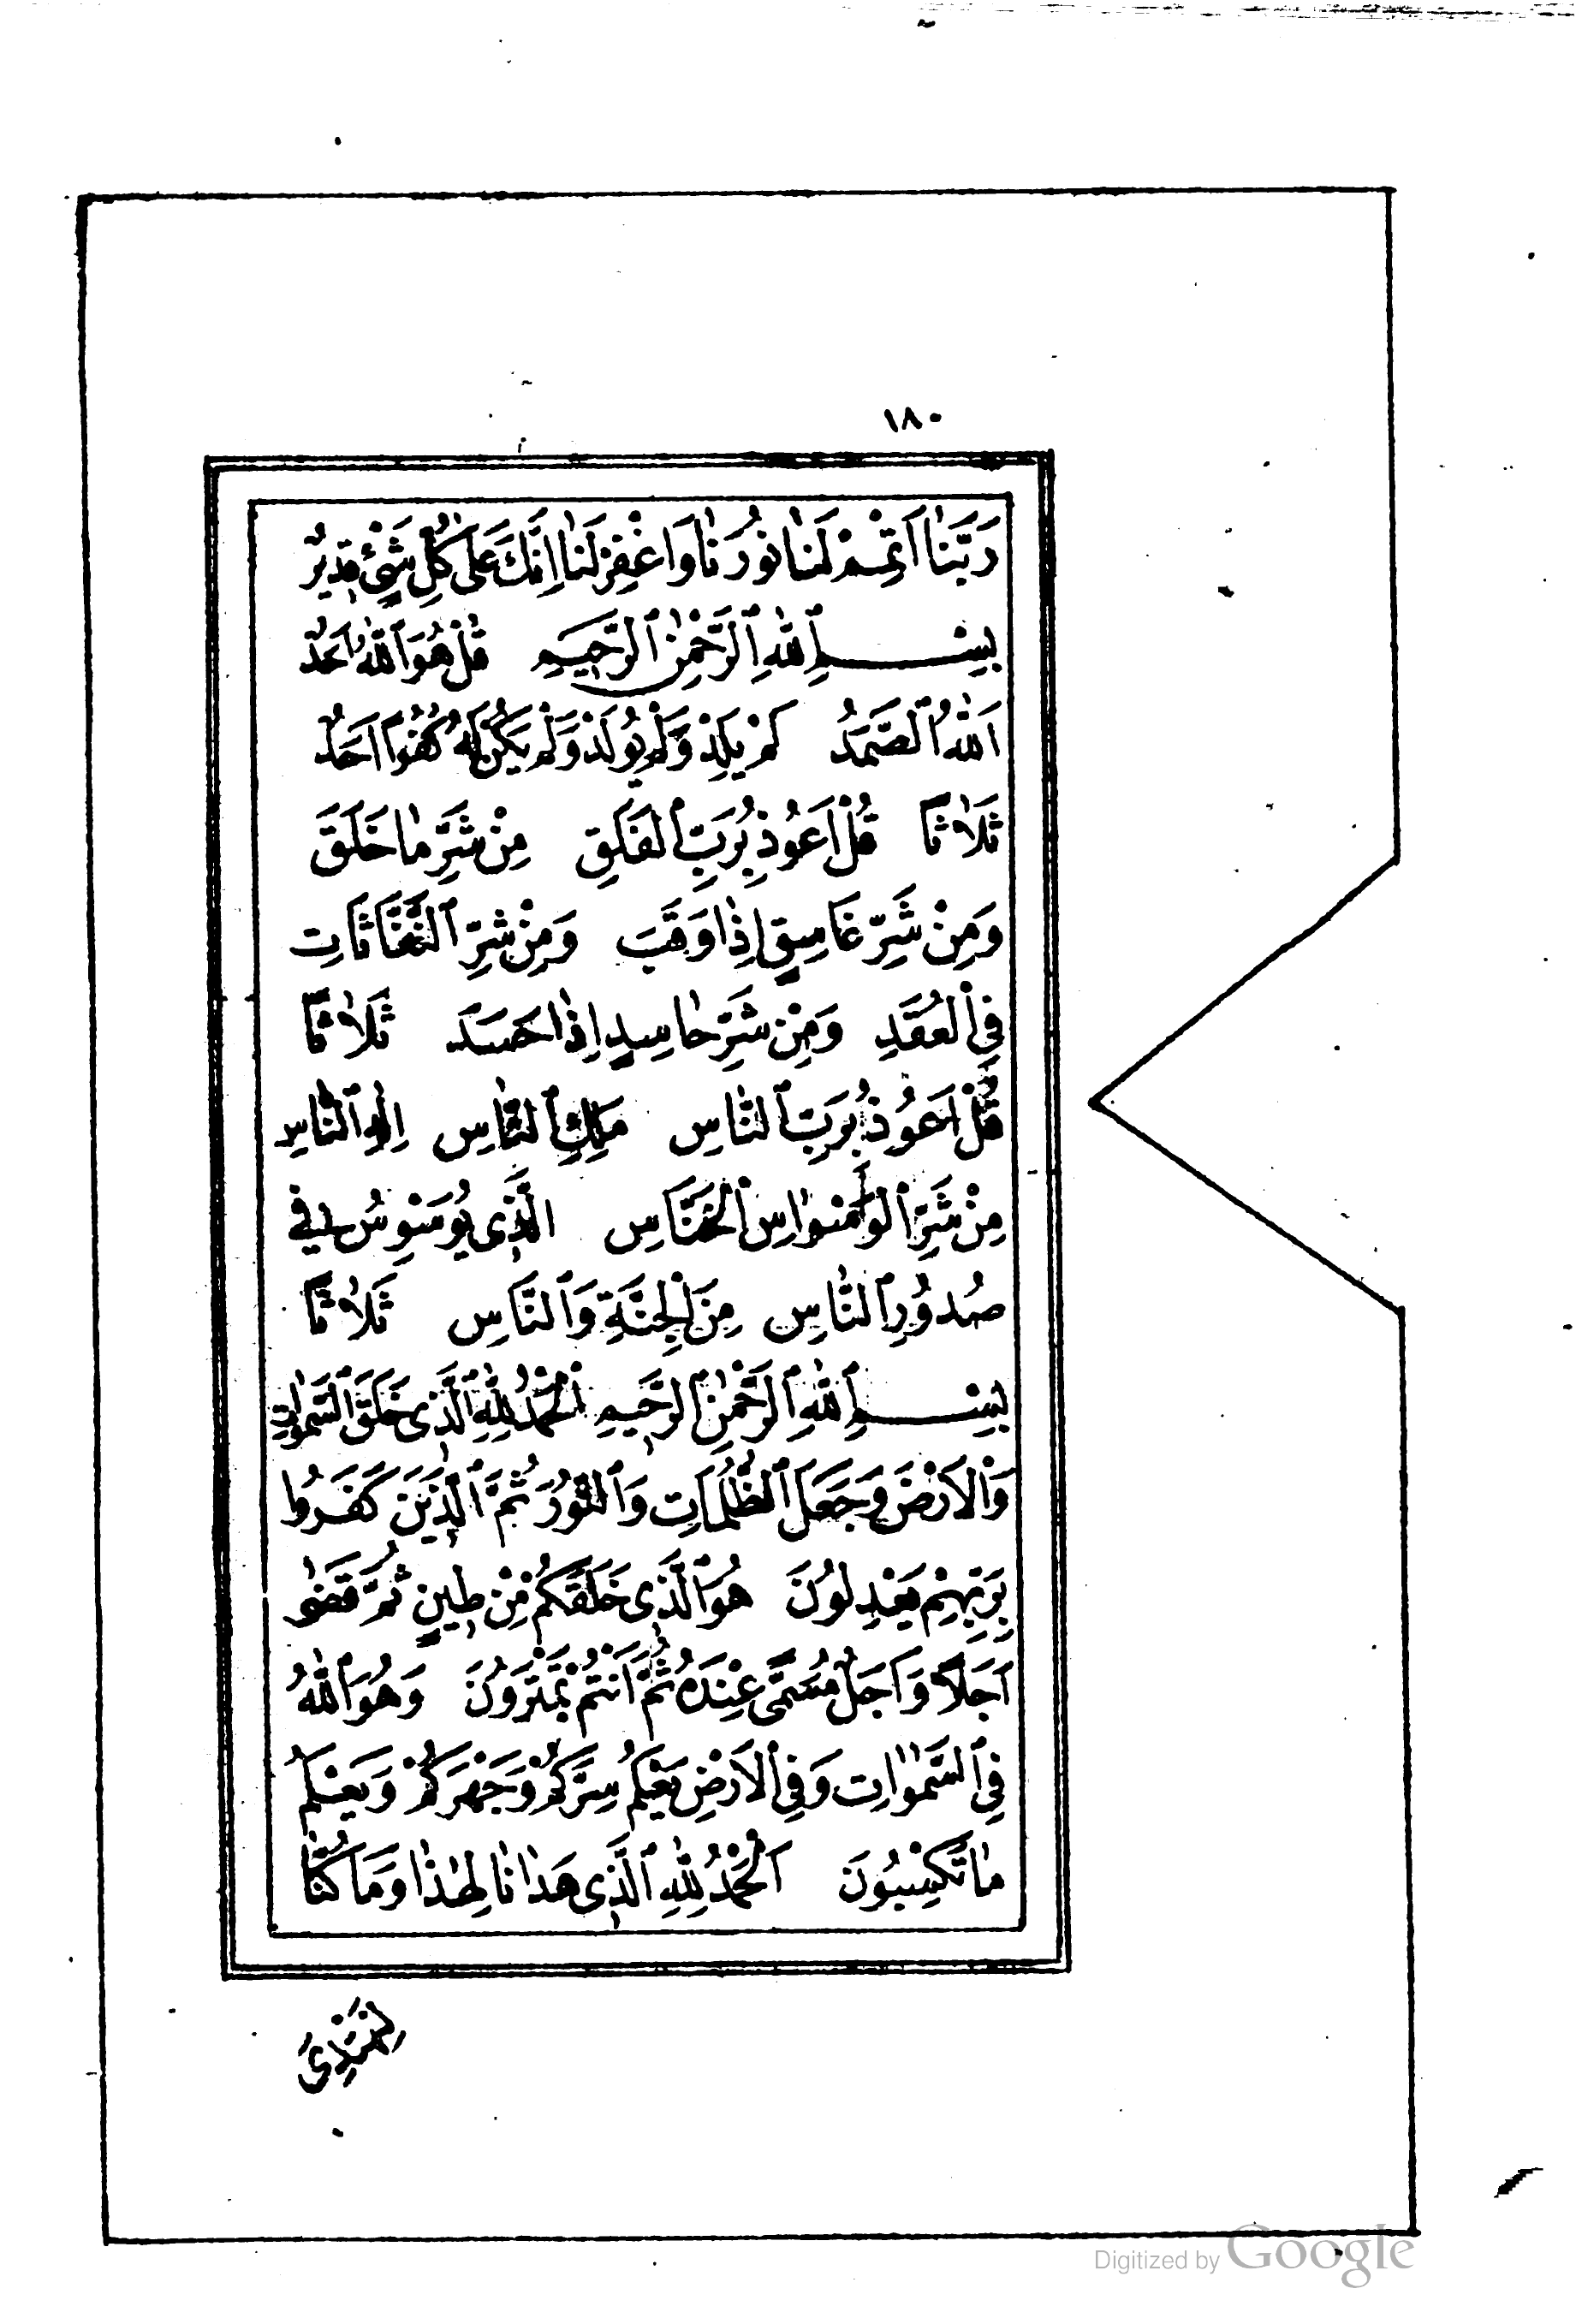 ١٨٠
رَبَّنَا اَتْمِمْ لَنَا نُورَنَا وَاغْفِرْ لَنَا اِنَّكَ عَلٰى كُلِّ شَيْءٍ قَدِيرٌ
بِسْمِ اللّٰهِ الرَّحْمٰنِ الرَّحِيمِ قُلْ هُوَ اللّٰهُ اَحَدٌ
اَللّٰهُ الصَّمَدُ لَمْ يَلِدْ وَلَمْ يُولَدْ وَلَمْ يَكُنْ لَهُ كُفُوًا اَحَدٌ
ثَلَاثًا قُلْ اَعُوذُ بِرَبِّ الْفَلَقِ مِنْ شَرِّ مَا خَلَقَ
وَمِنْ شَرِّ غَاسِقٍ اِذَا وَقَبَ وَمِنْ شَرِّ النَّفَّاثَاتِ
فِي الْعُقَدِ وَمِنْ شَرِّ حَاسِدٍ اِذَا حَسَدَ ثَلَاثًا
قُلْ اَعُوذُ بِرَبِّ النَّاسِ مَلِكِ النَّاسِ اِلٰهِ النَّاسِ
مِنْ شَرِّ الْوَسْوَاسِ الْخَنَّاسِ الَّذِي يُوَسْوِسُ فِي
صُدُورِ النَّاسِ مِنَ الْجِنَّةِ وَالنَّاسِ ثَلَاثًا
بِسْمِ اللّٰهِ الرَّحْمٰنِ الرَّحِيمِ اَلْحَمْدُ لِلّٰهِ الَّذِي خَلَقَ السَّمٰوَاتِ
وَالْاَرْضَ وَجَعَلَ الظُّلُمَاتِ وَالنُّورَ ثُمَّ الَّذِينَ كَفَرُوا
بِرَبِّهِمْ يَعْدِلُونَ هُوَ الَّذِي خَلَقَكُمْ مِنْ طِينٍ ثُمَّ قَضٰى
اَجَلًا وَاَجَلٌ مُسَمًّى عِنْدَهُ ثُمَّ اَنْتُمْ تَمْتَرُونَ وَهُوَ اللّٰهُ
فِي السَّمٰوَاتِ وَفِي الْاَرْضِ يَعْلَمُ سِرَّكُمْ وَجَهْرَكُمْ وَيَعْلَمُ
مَا تَكْسِبُونَ اَلْحَمْدُ لِلّٰهِ الَّذِي هَدَانَا لِهٰذَا وَمَا كُنَّا
لِنَهْتَدِيَ
Digitized by Google